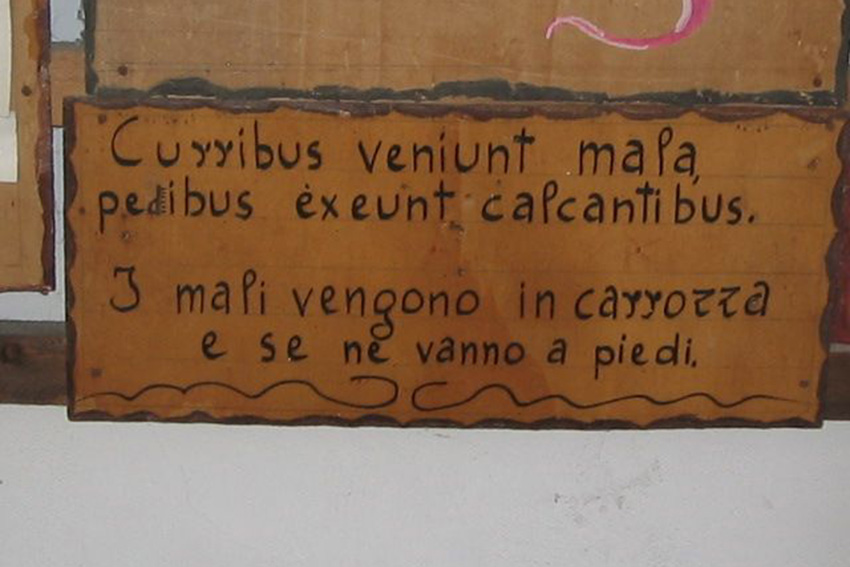 Curribus veniunt mala,
pedibus exeunt calcantibus.
I mali vengono in carrozza
e se ne vanno a piedi.